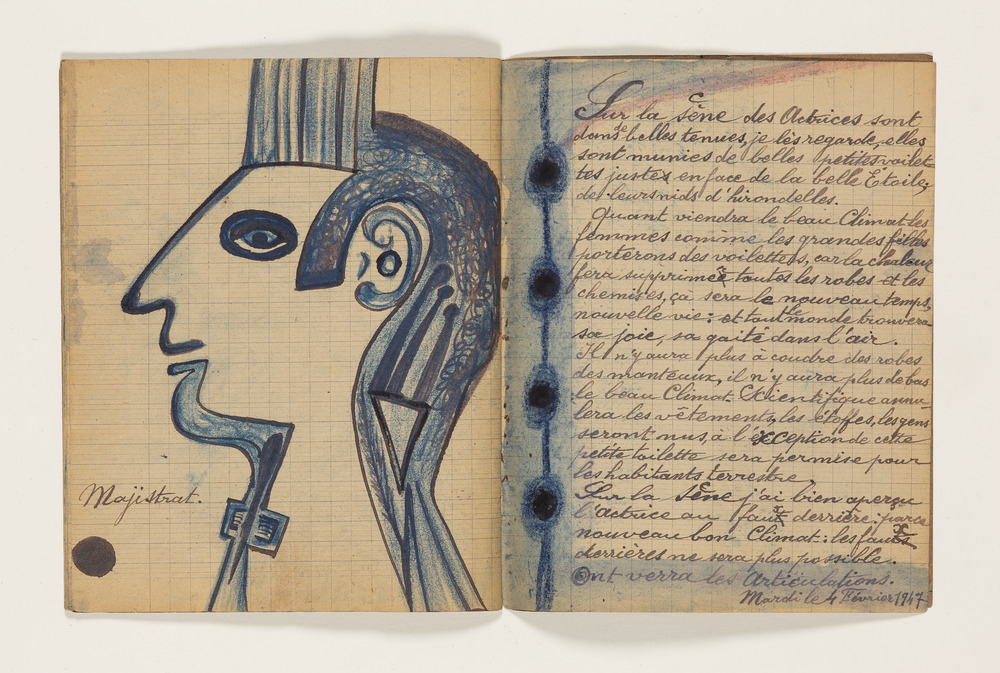 Majistrat.
Sur la sène des Actrices sont
dans de belles tenues, je lès regarde, elles
sont munies de belles petites voilet
tes justes en face de la belle Etoile,
de leurs nids d'hirondelles.
Quant viendra le beau Climat les
femmes comme les grandes filles
porterons des voilettes, car la chaleur
fera supprimée toutes les robes et les
chemises, ça sera le nouveau temps,
nouvelle vie: et tout le monde trouvera
sa joie, sa gaité dans l'air.
Il n'y aura plus à coudre des robes
des manteaux, il n'y aura plus de bas
le beau Climat Scientifique annu-
lera les vêtements, les étoffes, les gens
seront nus, à l'exception de cette
petite toilette sera permise pour
les habitants terrestre
Sur la Sène j'ai bien aperçu
l'actrice au faux derrière: parce
nouveau bon Climat: les faux
derrières ne sera plus possible.
Ont verra les Articulations.
Mardi le 4 Février 1947